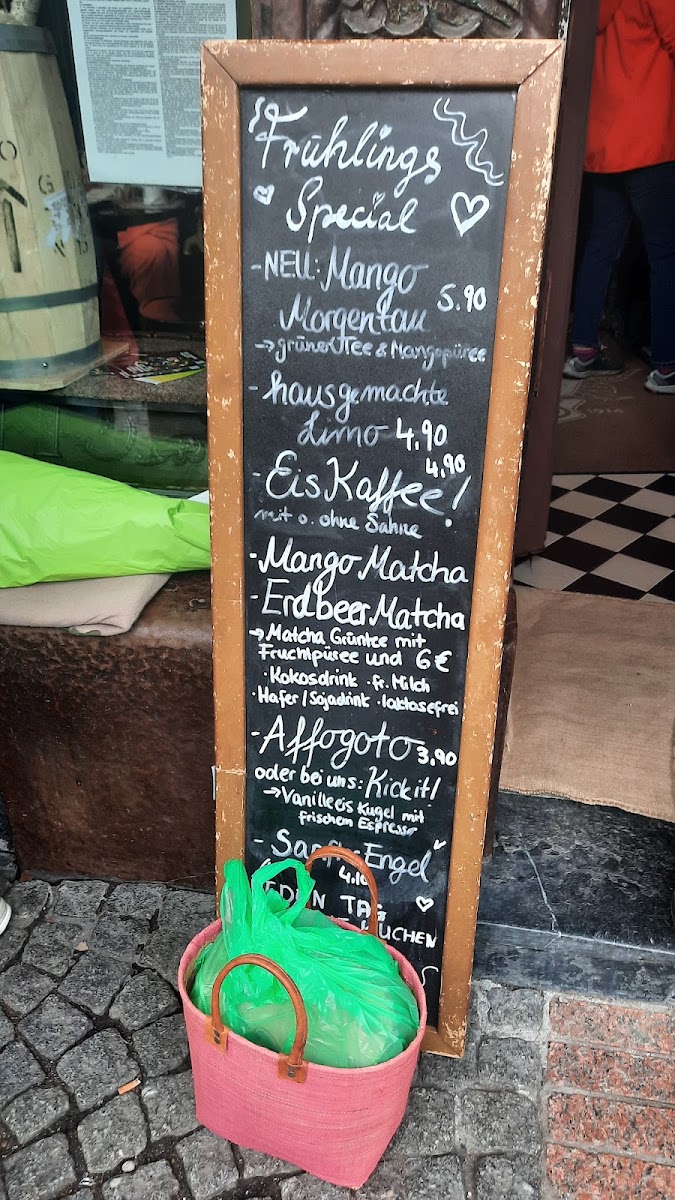 Frühlings
Special
- NEU: Mango
Morgentau 5.90
→ grüner Tee & Mangopüree
- hausgemachte
Limo 4,90
- EisKaffee! 4,90
mit o. ohne Sahne
- Mango Matcha
- ErdbeerMatcha
→ Matcha Grüntee mit
Fruchtpüree und 6€
· Kokosdrink · fr. Milch
· Hafer / Sojadrink · laktosefrei
- Affogoto 3,90
oder bei uns: Kick it!
→ Vanilleeis Kugel mit
frischem Espresso
- Engel
TAG